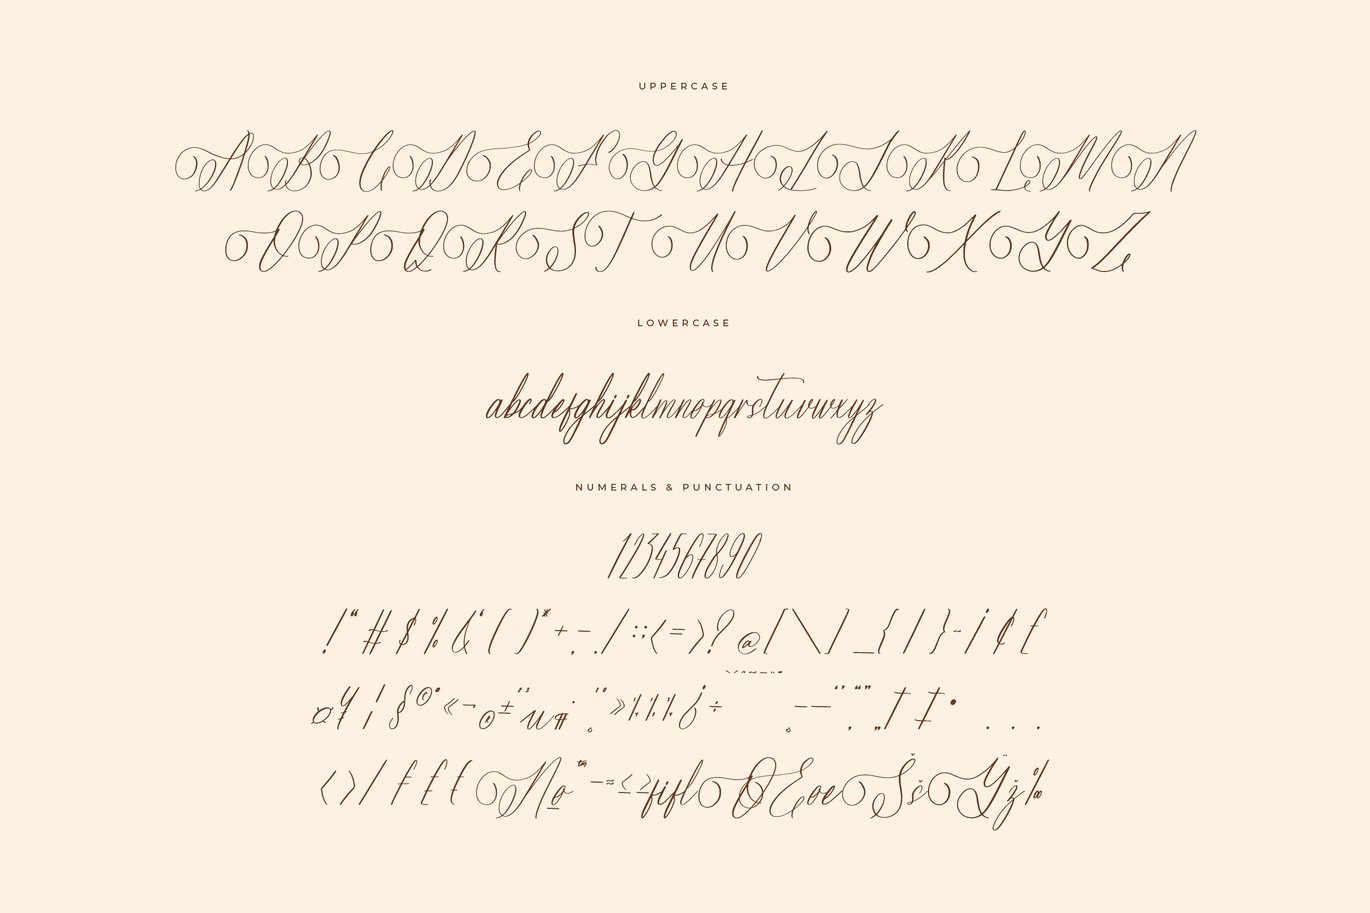 UPPERCASE
A B C D E F G H I J K L M N
O P Q R S T U V W X Y Z
LOWERCASE
abcdefghijklmnopqrstuvwxyz
NUMERALS & PUNCTUATION
1234567890
! " # $ % & ' ( ) * + , - . / : ; < = > ? @ [ \ ] _ { | } ~ ¡ ¢ £
¤ ¥ ¦ § © ª « ¬ ® ± ² ³ µ ¶ · ¸ ¹ º » ¼ ½ ¾ ¿ ÷ – — ‘ ’ ‚ “ ” „ † ‡ • . . .
‹ › / ƒ £ ₤ № ™ − ≈ ≤ ≥ fi fl Ø Œ œ Š š Ÿ ž ‰